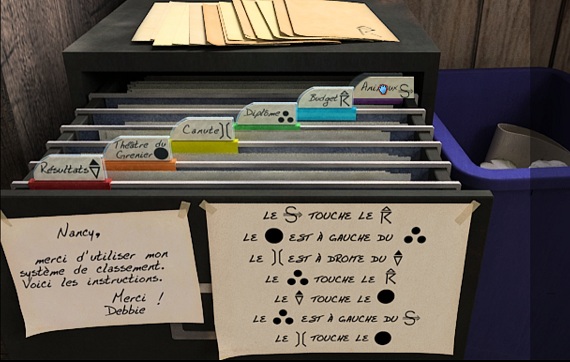 Animaux S
Budget R
Diplôme
Canute )(
Théâtre du
Grenier
Résultats
Nancy,
merci d'utiliser mon
système de classement.
Voici les instructions.
Merci !
Debbie
LE S TOUCHE LE R
LE ● EST À GAUCHE DU ∴
LE )( EST À DROITE DU ♦
LE ∴ TOUCHE LE R
LE ♦ TOUCHE LE ●
LE ∴ EST À GAUCHE DU S
LE )( TOUCHE LE ●